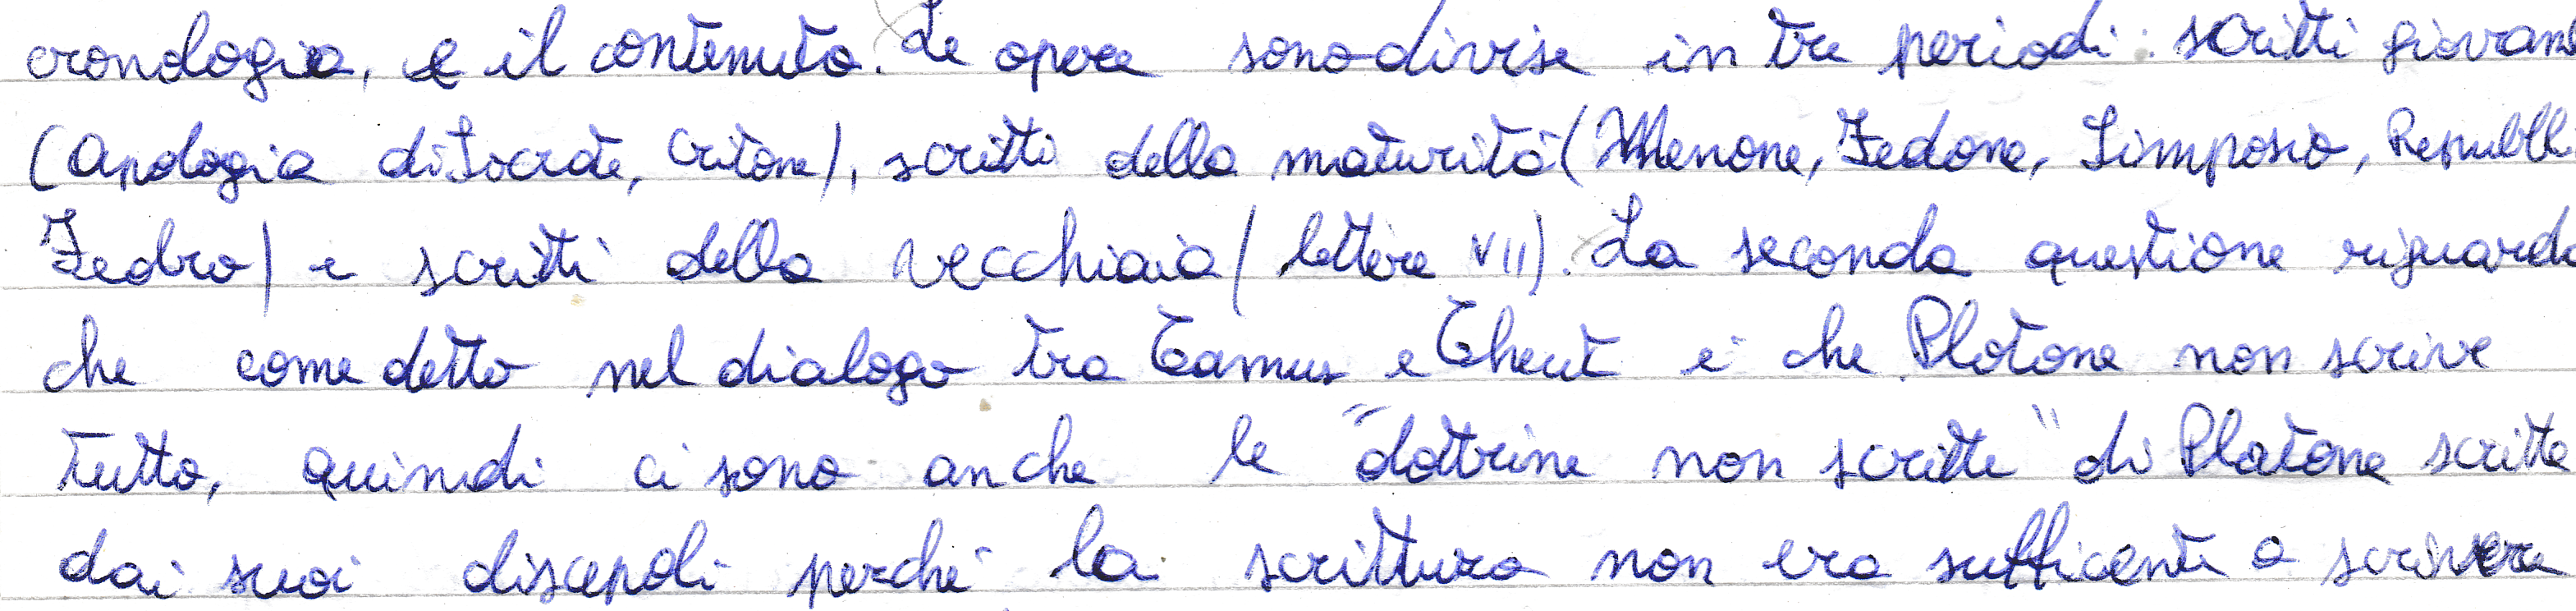 cronologia, e il contenuto. Le opere sono divise in tre periodi: scritti giovani
(Apologia di Socrate, Critone), scritti della maturità (Menone, Fedone, Simposio, Repubbl
Fedro) e scritti della vecchiaia (lettere VII). La seconda questione riguarda
che come detto nel dialogo tra Tamus e Theut è che Platone non scrive
tutto, quindi ci sono anche le "dottrine non scritte" di Platone scritte
dai suoi discepoli perché la scrittura non era sufficente a scrivere